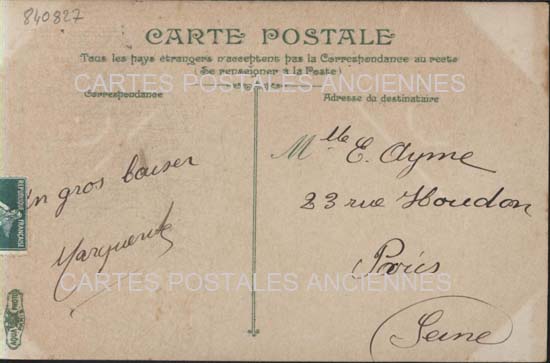 840827
CARTE POSTALE
Tous les pays étrangers n'acceptent pas la Correspondance au recto
(Se renseigner à la Poste)
CARTES POSTALES ANCIENNES
Correspondance
Adresse du destinataire
un gros baiser
Marguerite
Mlle E. Ayme
23 rue Houdon
Paris
Seine
REPUBLIQUE FRANÇAISE
CARTES POSTALES ANCIENNES